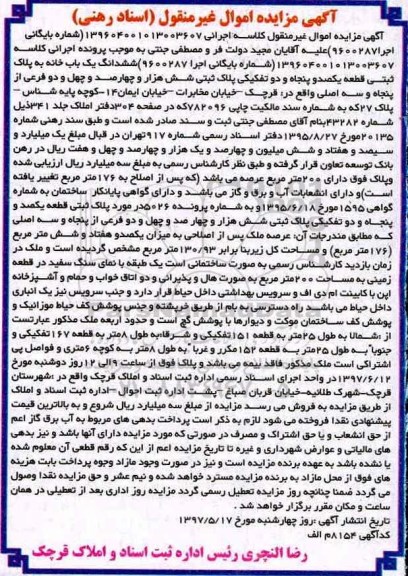 آگهی مزایده اموال غیرمنقول (اسناد رهنی)
آگهی مزایده اموال غیرمنقول کلاسه اجرائی ۱۳۹۶۰۴۰۰۱۰۱۳۰۰۳۶۰۷ (شماره بایگانی
اجرا ۹۶۰۰۲۸۷) علیه آقایان مجید دولت فر و مصطفی جنتی به موجب پرونده اجرائی کلاسه
۱۳۹۶۰۴۰۰۱۰۱۳۰۰۳۶۰۷ (شماره بایگانی اجرا ۹۶۰۰۲۸۷) ششدانگ یک باب خانه به پلاک
ثبتی قطعه یکصدو پنجاه و دو تفکیکی پلاک ثبتی شش هزار و چهارصد و چهل و دو فرعی از
پنجاه و سه اصلی واقع در: قرچک –خیابان مخابرات –خیابان ایمان۱۴–کوچه پایه شناس –
پلاک ۲۷ که به شماره سند مالکیت چاپی ۷۸۲۰۹۶ که در صفحه ۳۰۴ دفتر املاک جلد ۳۴۱ ذیل
شماره ۴۳۲۸۲ بنام آقای مصطفی جنتی ثبت و سند صادر شده است و طبق سند رهنی شماره
۲۰۱۳۵ مورخ ۱۳۹۵/۸/۲۷ دفتر اسناد رسمی شماره ۹۱۷ تهران در قبال مبلغ یک میلیارد و
سیصد و هفتاد و شش میلیون و چهارصد و یک هزار و چهارصد و چهل و هفت ریال در رهن
بانک توسعه تعاون قرار گرفته و طبق نظر کارشناس رسمی به مبلغ سه میلیارد ریال ارزیابی شده
وپلاک فوق دارای ۲۰۰متر مربع عرصه می باشد (که پس از اصلاح به ۱۷۶ متر مربع تغییر یافته
است)و دارای انشعابات آب و برق و گاز می باشد و دارای گواهی پایانکار ساختمان به شماره
گواهی ۱۵۹۵مورخ ۱۳۹۵/۸/۸ و به شماره پرونده ۵۰۲۶در مورد پلاک ثبتی قطعه یکصد و
پنجاه و دو تفکیکی پلاک ثبتی شش هزار و چهار صد و چهل و دو فرعی از پنجاه و سه اصلی
که مطابق مندرجات آن: عرصه ملک پس از اصلاحی به میزان یکصدو هفتاد و شش متر مربع
(۱۷۶متر مربع) و مساحت کل زیربنا برابر ۱۳۰/۹۳ متر مربع مشخص گردیده است و ملک در
زمان بازدید کارشناس رسمی به صورت ساختمانی است یک طبقه با نمای سنگ سفید در قطعه
زمینی به مساحت ۲۰۰متر مربع به صورت هال و پذیرائی و دو اتاق خواب و حمام و آشپزخانه
اپن با کابینت ام دی اف و سرویس بهداشتی داخل حیاط قرار دارد و جنب سرویس نیز یک انباری
داخل حیاط می باشد. راه دسترسی به بام از طریق خرپشته و جنس پوشش کف حیاط موزائیک و
پوشش کف ساختمان موکت و دیوارها با پوشش گچ است و حدود اربعه ملک مذکور عبارتست
از :شمالا به طول ۲۵متر به قطعه ۱۵۱ تفکیکی و شرقا به طول ۸متر به قطعه ۱۶۷ تفکیکی و
جنوبا به طول ۲۵متر به قطعه ۱۵۲مکرر و غربا به طول ۸متر به کوچه ۶متری و فواصل پی
اشتراکی است ملک مذکور فاقد بیمه می باشد و پلاک فوق از ساعت ۹ الی ۱۲روز دوشنبه مورخ
۱۳۹۷/۶/۱۲ در واحد اجرای اسناد رسمی اداره ثبت اسناد و املاک قرچک واقع در :شهرستان
قرچک–شهرک طلائیه–خیابان قربان صباغ –جنب اداره ثبت احوال –اداره ثبت اسناد و املاک
از طریق مزایده به فروش می رسد مزایده از مبلغ سه میلیارد ریال شروع و به بالاترین قیمت
پیشنهادی نقدا فروخته می شود لازم به ذکر است پرداخت بدهی های مربوط به آب برق گاز اعم
از حق انشعاب و یا حق اشتراک و مصرف در صورتی که مورد مزایده دارای آنها باشد و نیز بدهی
های مالیاتی و عوارض شهرداری و غیره تا تاریخ مزایده اعم از این که رقم قطعی آن معلوم شده
یا نشده باشد به عهده برنده مزایده است و نیز در صورت وجود مازاد وجوه پرداخت بابت هزینه
های فوق از محل مازاد به برنده مزایده مسترد خواهد شد و نیم عشر و حق مزایده نقدا وصول
می گردد ضمنا چنانچه روز مزایده تعطیل رسمی گردد مزایده روز اداری بعد از تعطیلی در همان
ساعت و مکان مقرر برگزار خواهد شد .
تاریخ انتشار آگهی :روز چهارشنبه مورخ ۱۳۹۷/۵/۱۷
کدآگهی ۸۱۵۴م الف
رضا النچری رئیس اداره ثبت اسناد و املاک قرچک